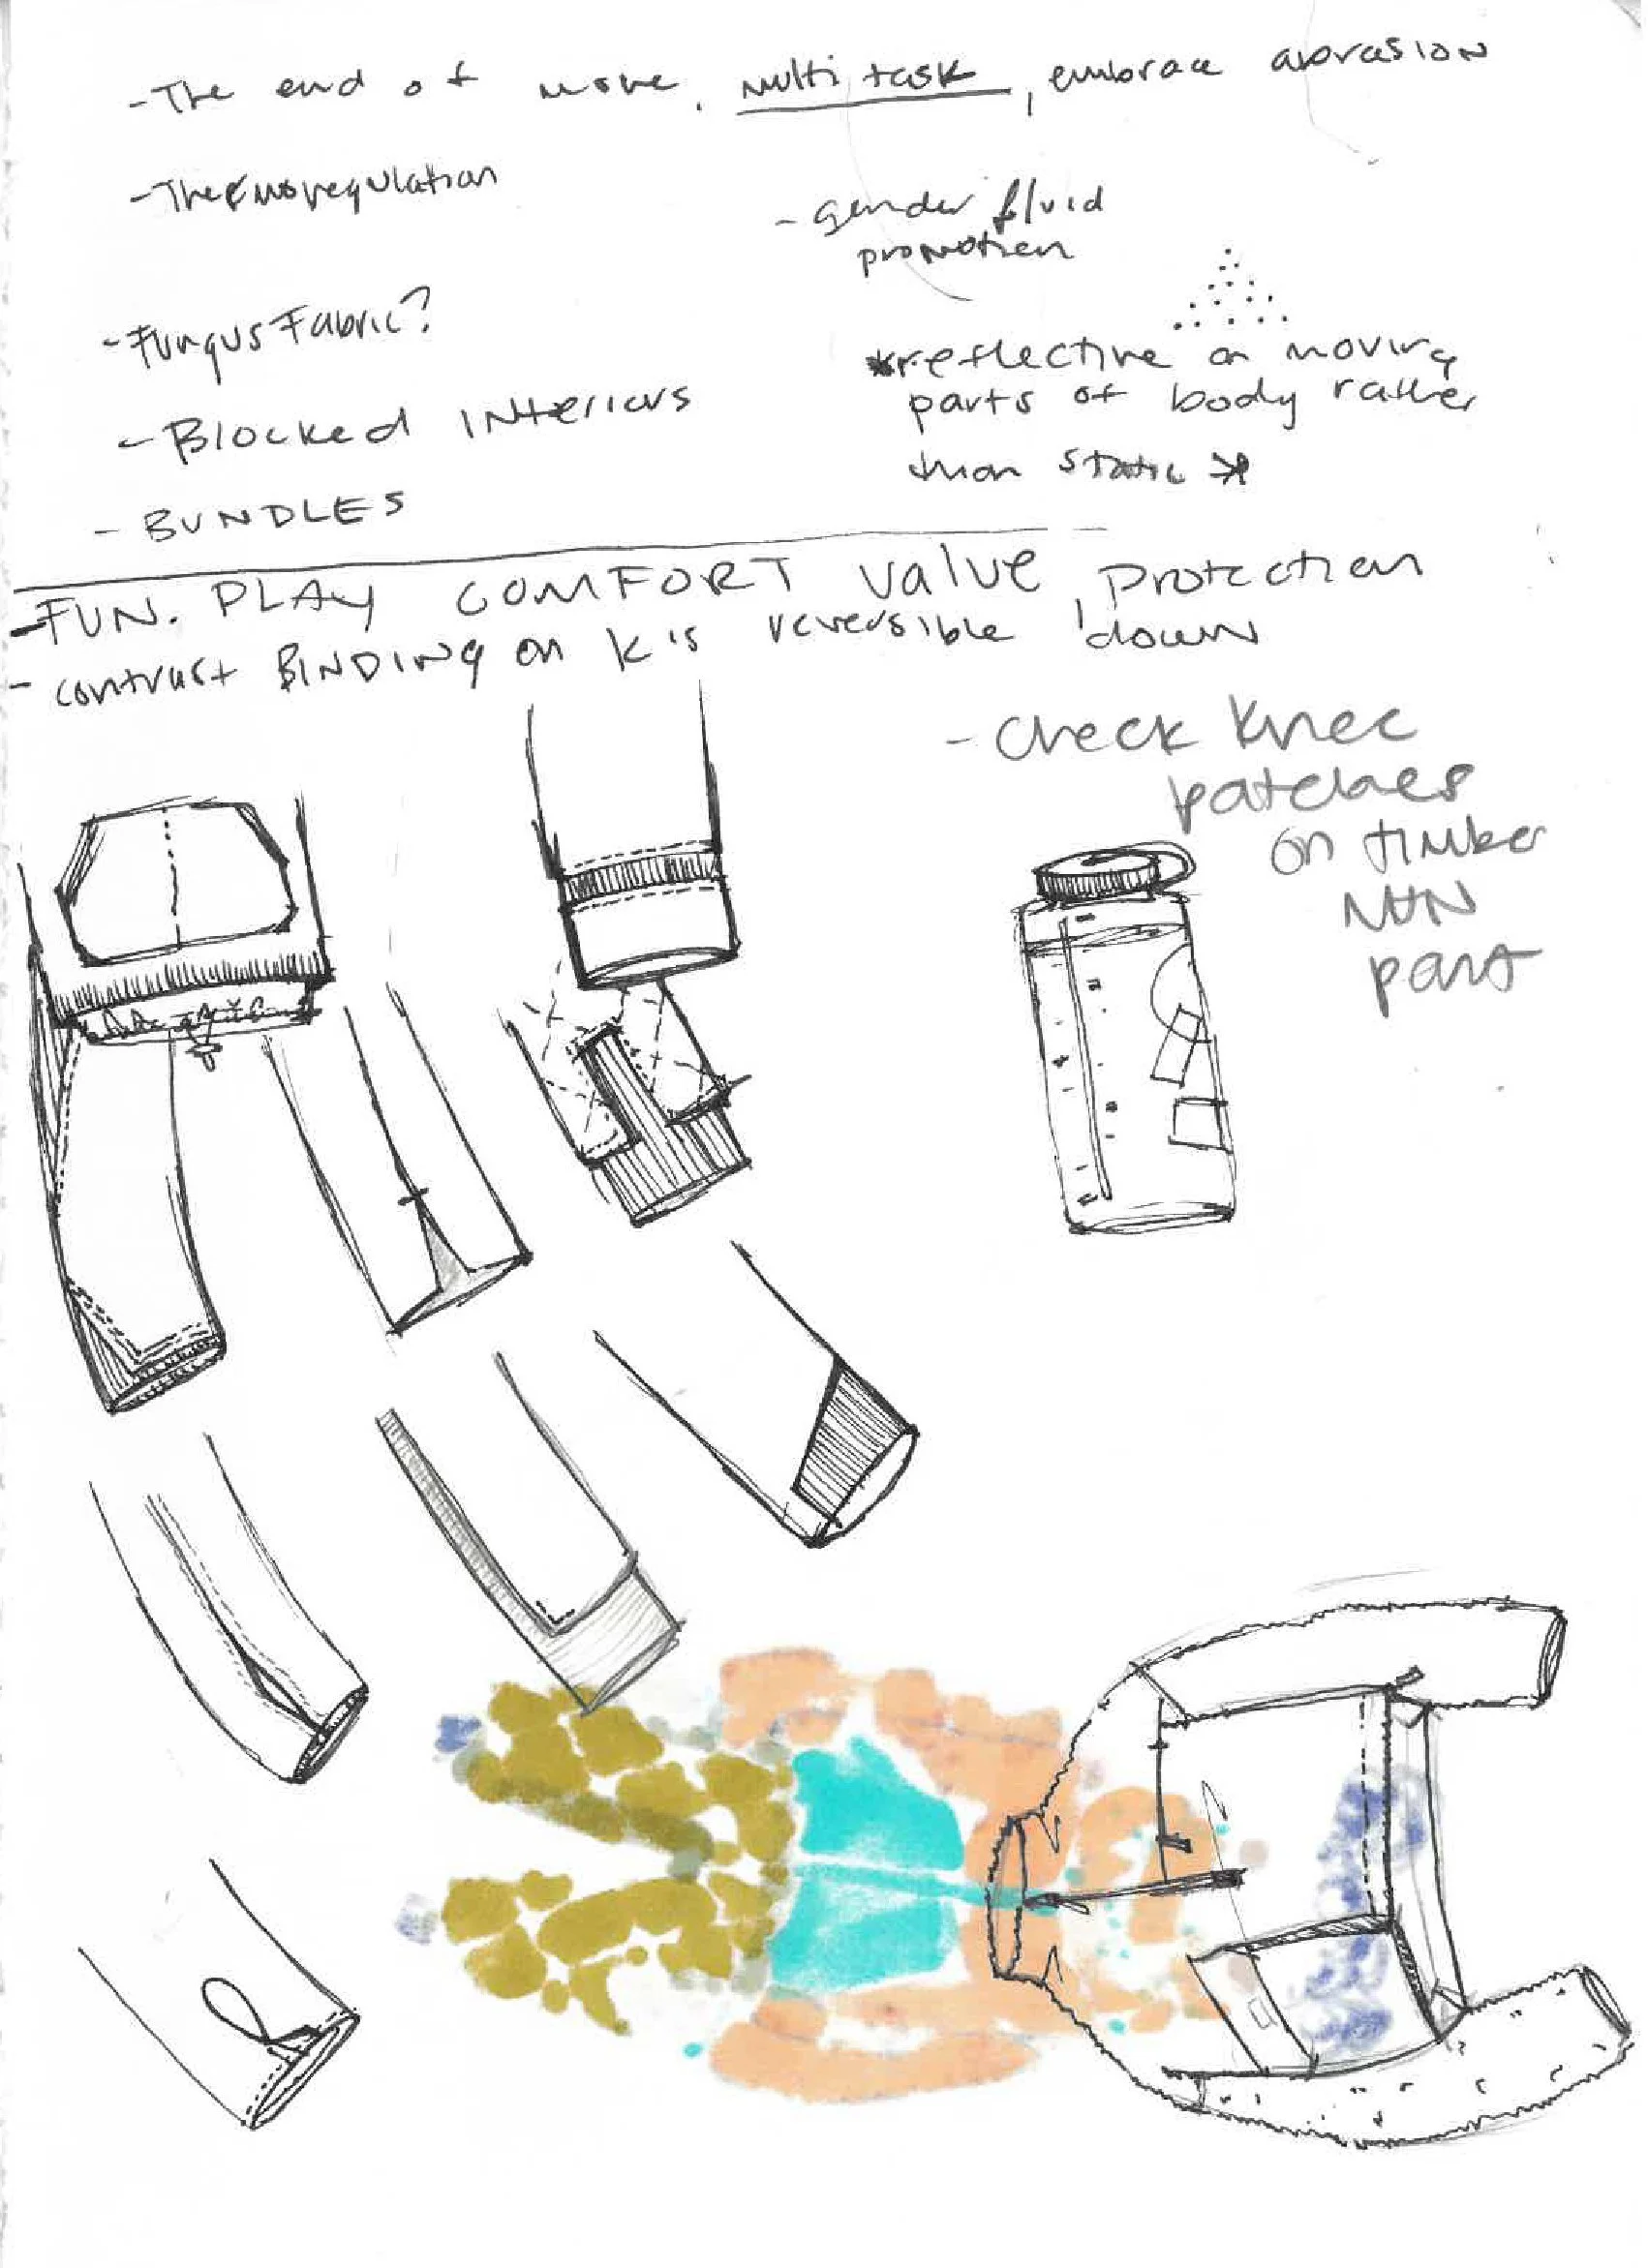 - The end of more, multi task, embrace abrasion
- Thermoregulation
- gender fluid
promotion
- Fungus Fabric?
*reflective on moving
parts of body rather
than static *
- Blocked Interiors
- BUNDLES
- FUN. PLAY COMFORT value, protection
- contrast BINDING on K's reversible down
- Check knee
patches
on timber
MTN
pant